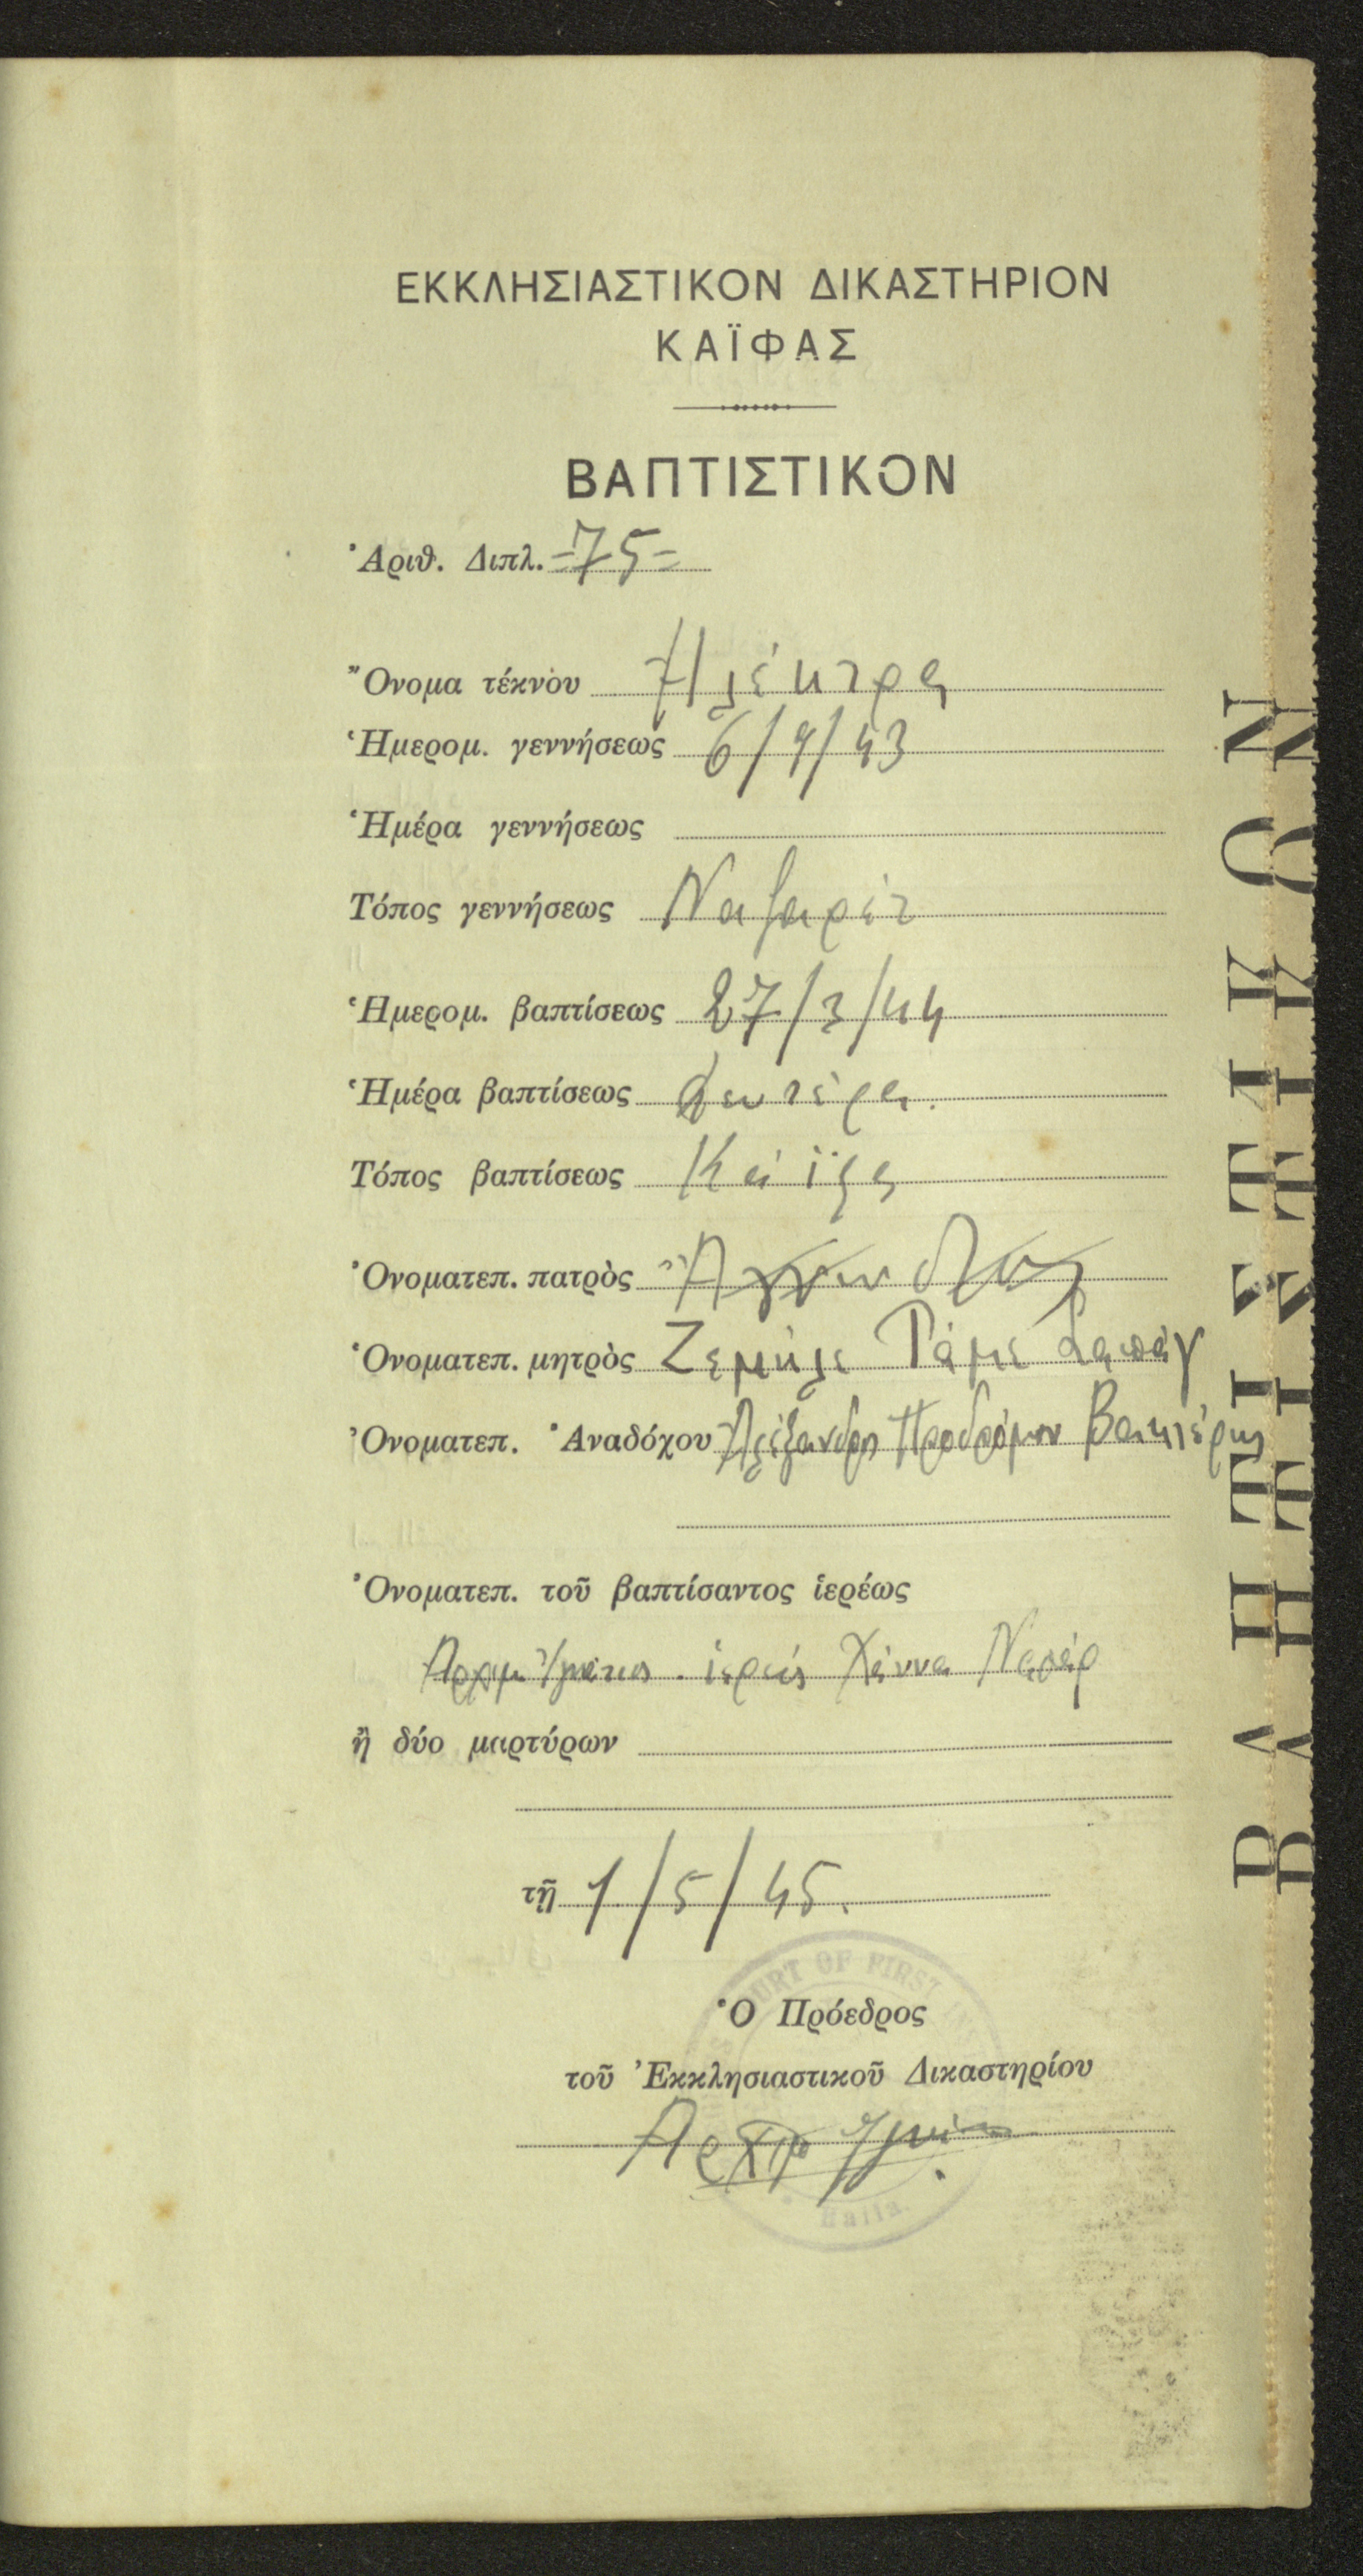 ΕΚΚΛΗΣΙΑΣΤΙΚΟΝ ΔΙΚΑΣΤΗΡΙΟΝ
ΚΑΪΦΑΣ
ΒΑΠΤΙΣΤΙΚΟΝ
Ἀριθ. Διπλ. =75=
Ὄνομα τέκνου Ἠλέκτρα
Ἡμερομ. γεννήσεως 6/9/43
Ἡμέρα γεννήσεως
Τόπος γεννήσεως Ναζαρέτ
Ἡμερομ. βαπτίσεως 27/3/44
Ἡμέρα βαπτίσεως Δευτέρα.
Τόπος βαπτίσεως Κάϊφα
Ὀνοματεπ. πατρὸς
Ὀνοματεπ. μητρὸς Ζεμήλε Ράμε
Ὀνοματεπ. Ἀναδόχου Ἀλεξάνδρα Προδρόμου
Ὀνοματεπ. τοῦ βαπτίσαντος ἱερέως
Ἀρχιμ ἱερεύς Χάννα Νασάρ
ἢ δύο μαρτύρων
τῇ 1/5/45.
Ὁ Πρόεδρος
τοῦ Ἐκκλησιαστικοῦ Δικαστηρίου
Ἀρχιμ
COURT OF FIRST
Haifa
ΒΑΠΤΙΣΤΙΚΟΝ
ΒΑΠΤΙΣΤΙΚΟΝ